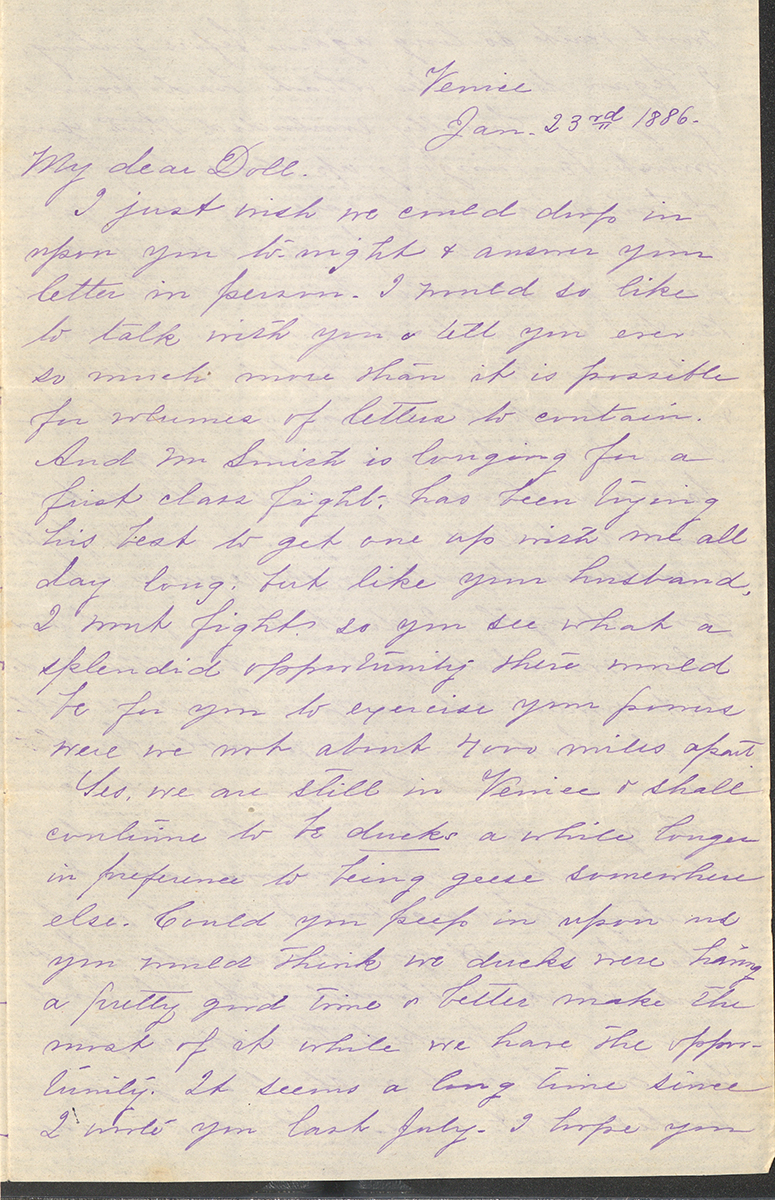 Venice
Jan. 23rd 1886.
My dear Doll.
I just wish we could drop in
upon you to-night & answer your
letter in person. I would so like
to talk with you & tell you ever
so much more than it is possible
for volumes of letters to contain.
And Mr Smith is longing for a
first class fight, has been trying
his best to get one up with me all
day long, but like your husband,
I wont fight. so you see what a
splendid opportunity there would
be for you to exercise your powers
were we not about 4000 miles apart.
Yes, we are still in Venice & shall
continue to be ducks a while longer
in preference to being geese somewhere
else. Could you peep in upon us
you would think we ducks were having
a pretty good time & better make the
most of it while we have the oppor-
tunity. It seems a long time since
I wrote you last July. I hope you